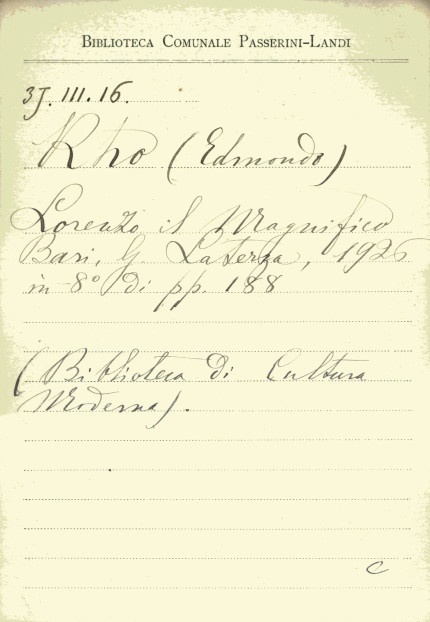 BIBLIOTECA COMUNALE PASSERINI-LANDI
3J. III. 16.
Rho (Edmondo)
Lorenzo il Magnifico
Bari, G. Laterza, 1926
in 8° di pp. 188
(Biblioteca di Cultura
Moderna).
C